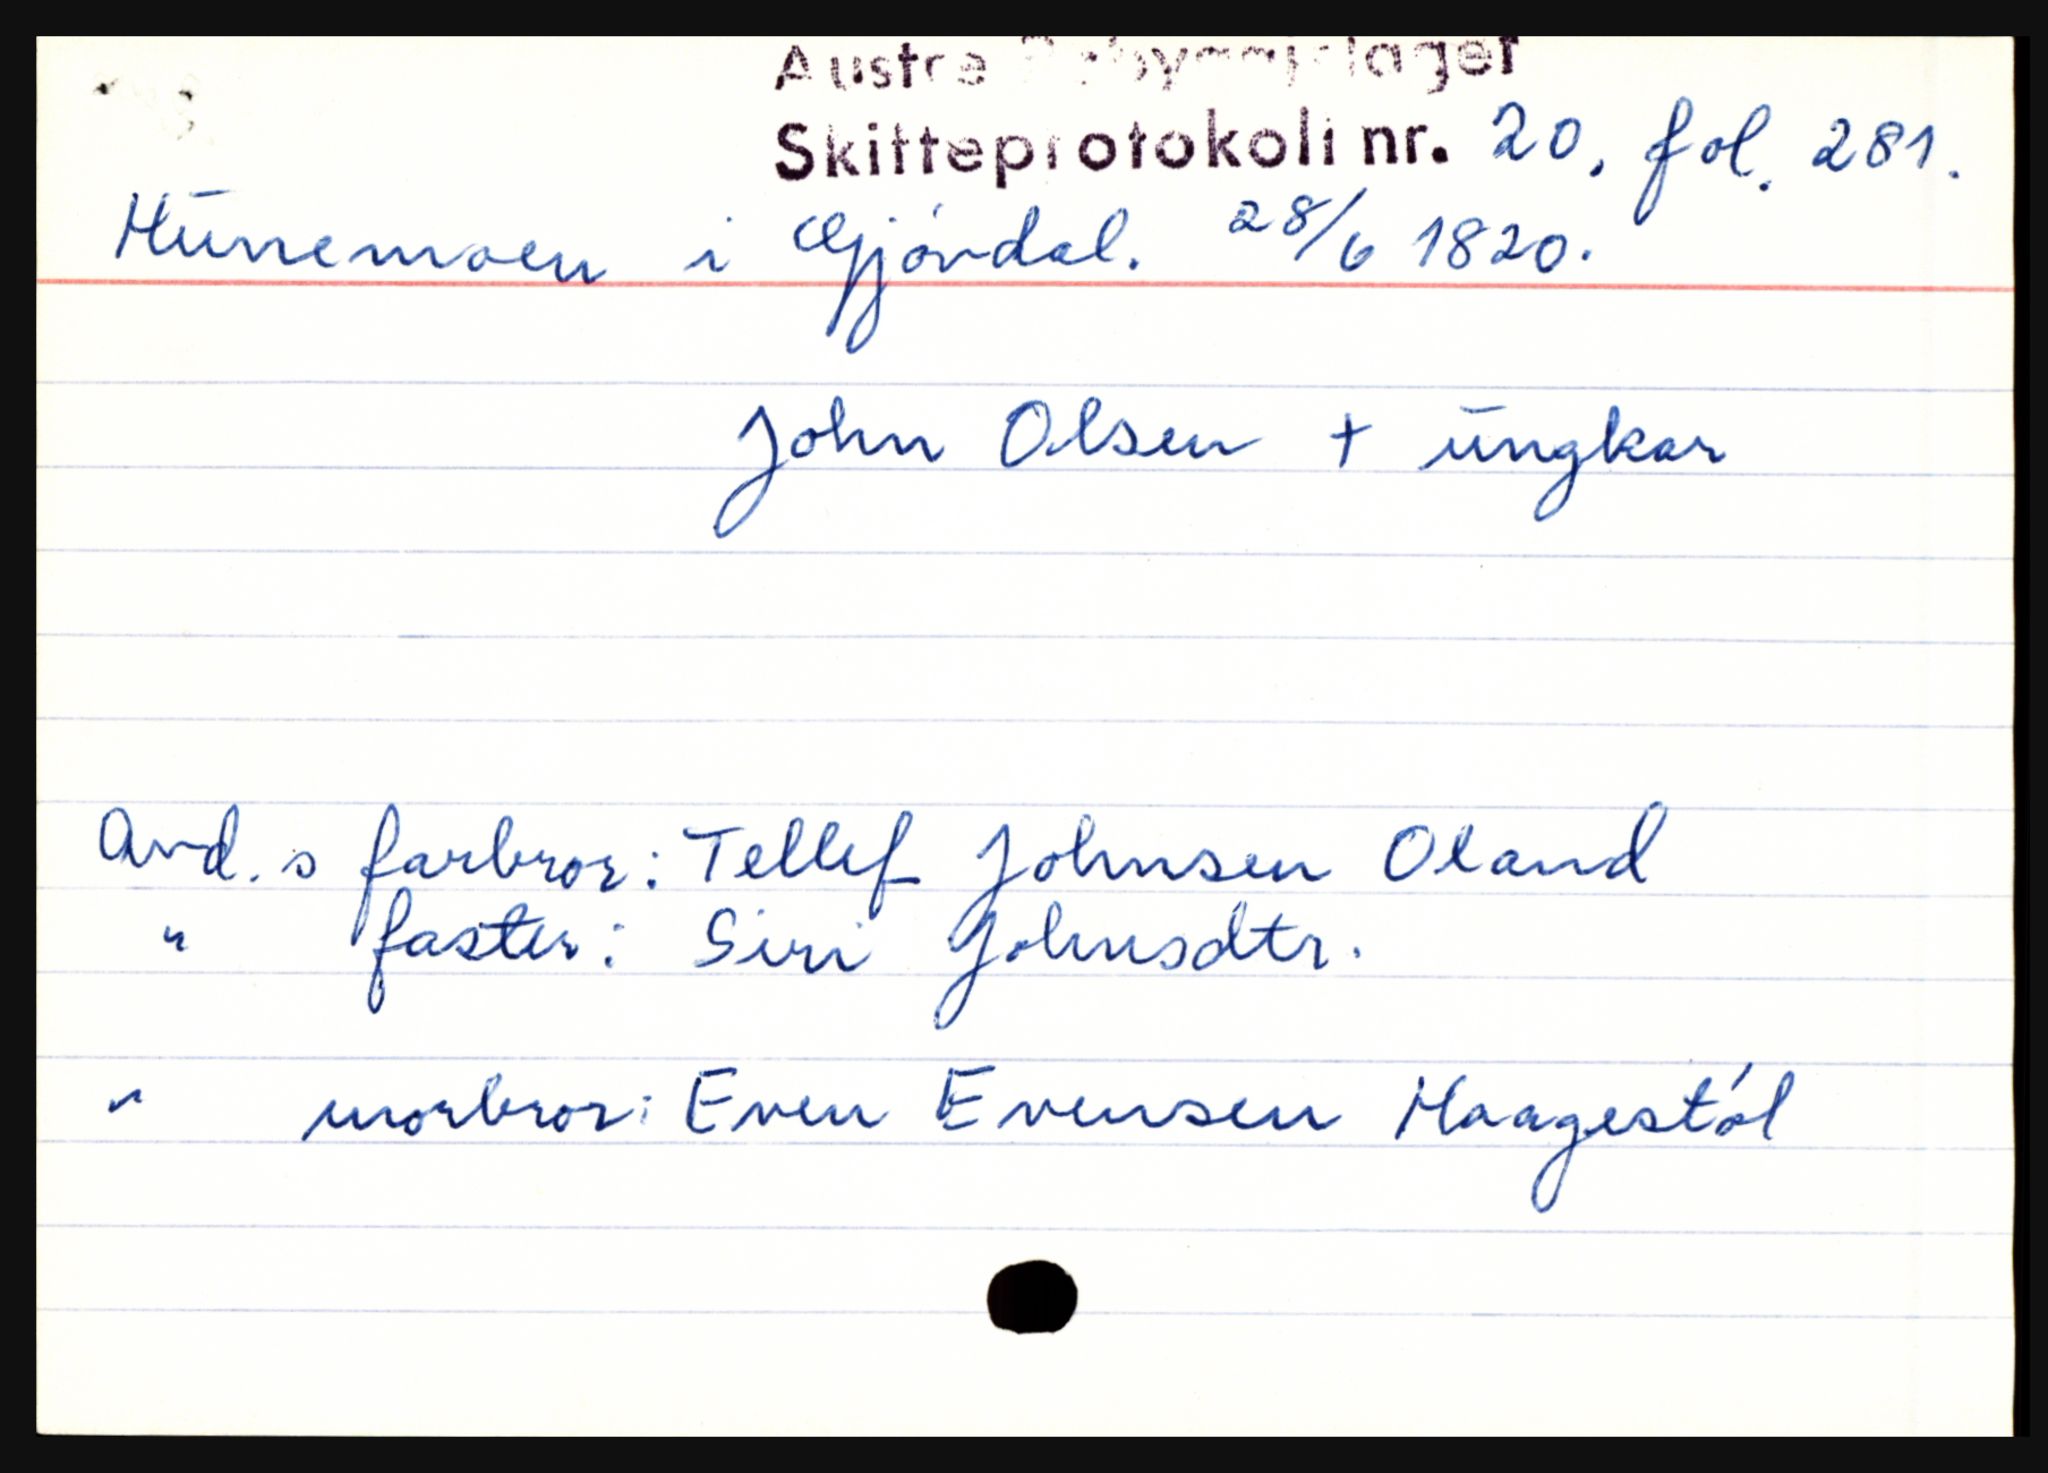 Austre Råbyggjelaget
Skifteprotokoll nr. 20. fol. 281.
Hūnemoen i Gjövdal. 28/6 1820.
John Olsen + ūngkar
Avd. s farbror: Tellef Johnsen Oland
" faster: Siri Johnsdtr.
" morbror: Even Evensen Haagestöl